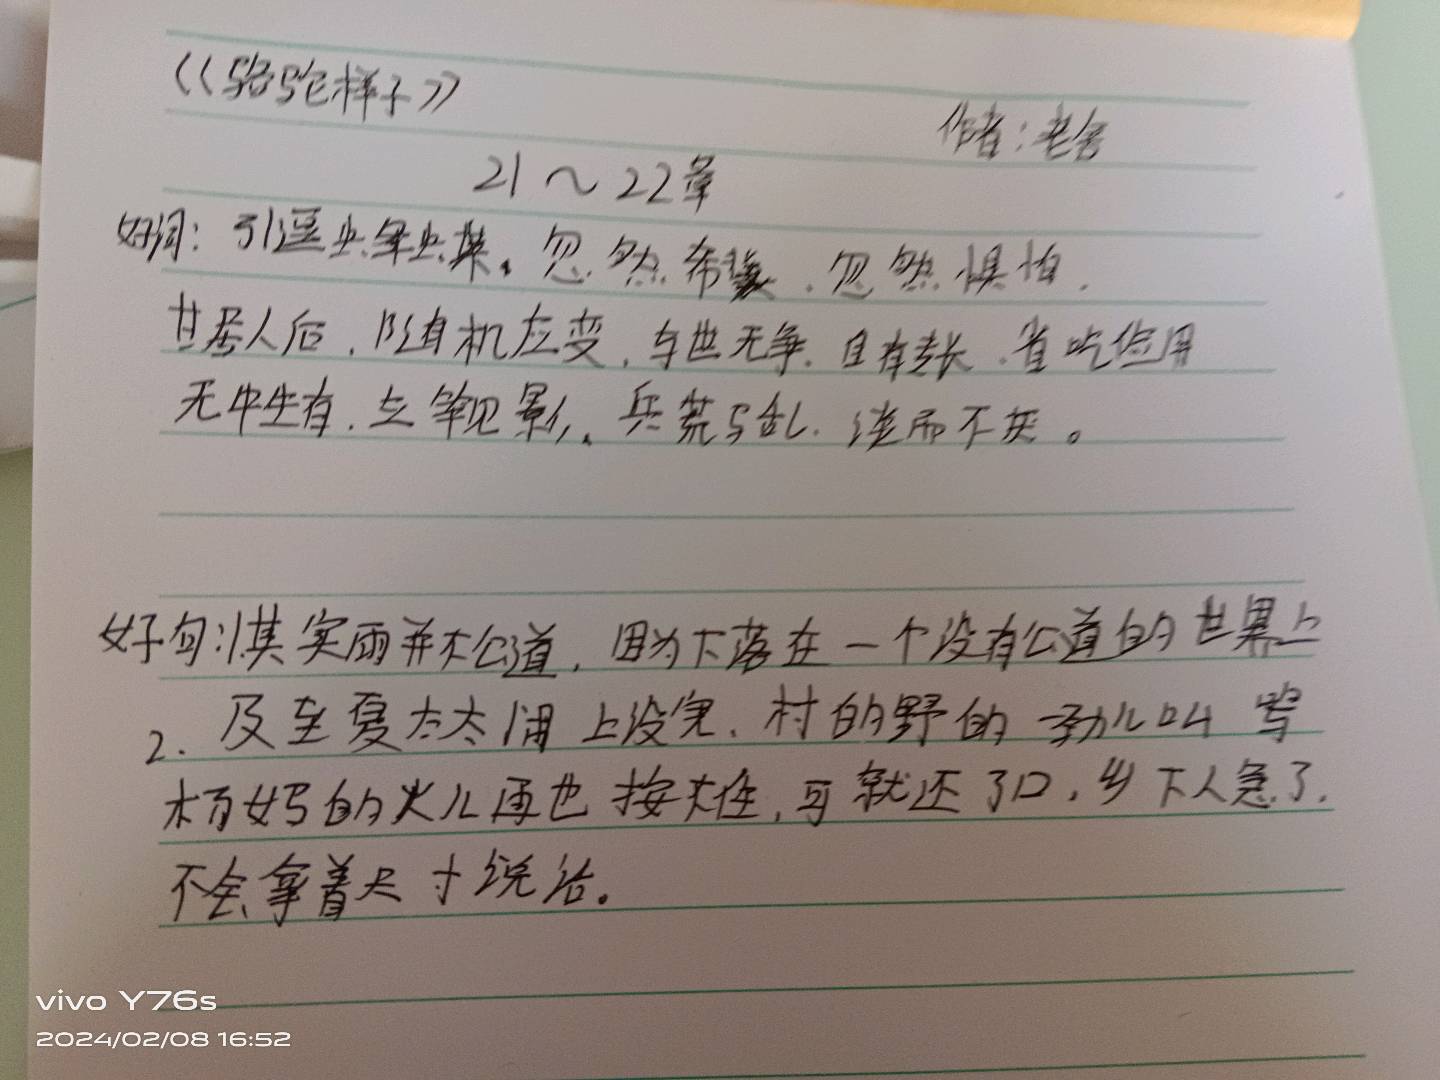 《骆驼样子》
作者：老舍
21～22章
好词：引逗出笨出来、忽然希望、忽然惧怕、
甘居人后、随机应变、与世无争、自有专长、省吃俭用
无中生有、立竿见影、兵荒马乱、淡而不厌。
好句：1其实雨并不公道，因为下落在一个没有公道的世界上
2. 及至夏太太闹上没完，村的野的一劲儿叫骂
杨妈的火儿再也按不住，可就还了口，乡下人急了，
不会拿着尺寸说话。
vivo Y76s
2024/02/08 16:52